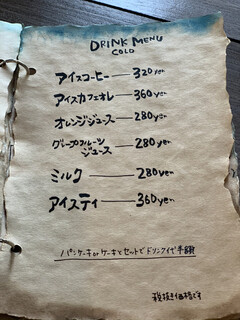 DRINK MENU
COLD
アイスコーヒー — 320yen
アイスカフェオレ — 360yen
オレンジジュース — 280yen
グレープフルーツ
ジュース — 280yen
ミルク — 280yen
アイスティ — 360yen
パンケーキorケーキとセットでドリンク
税抜き価格です